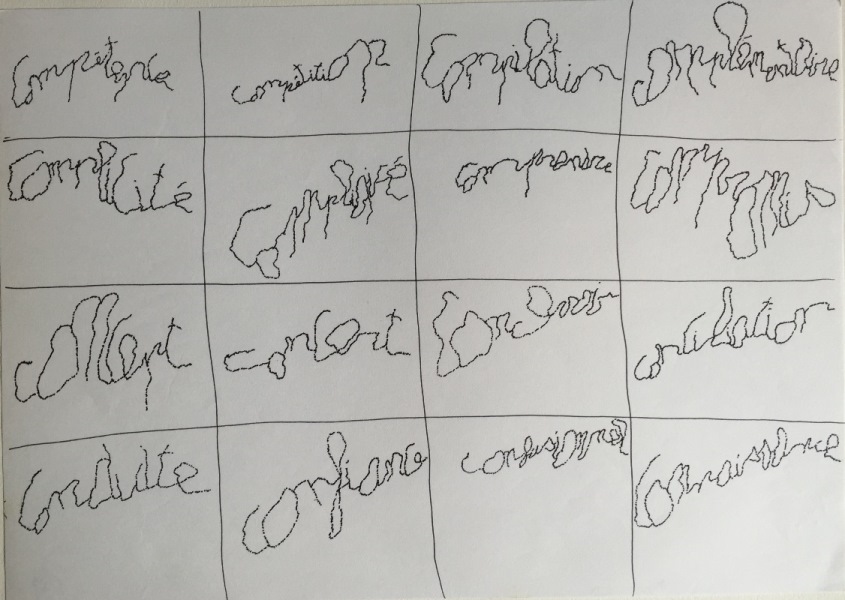 compétence
compétition
compilation
complémentaire
complicité
compliqué
comprendre
concept
concert
conciliation
conduite
confiance
connaissance